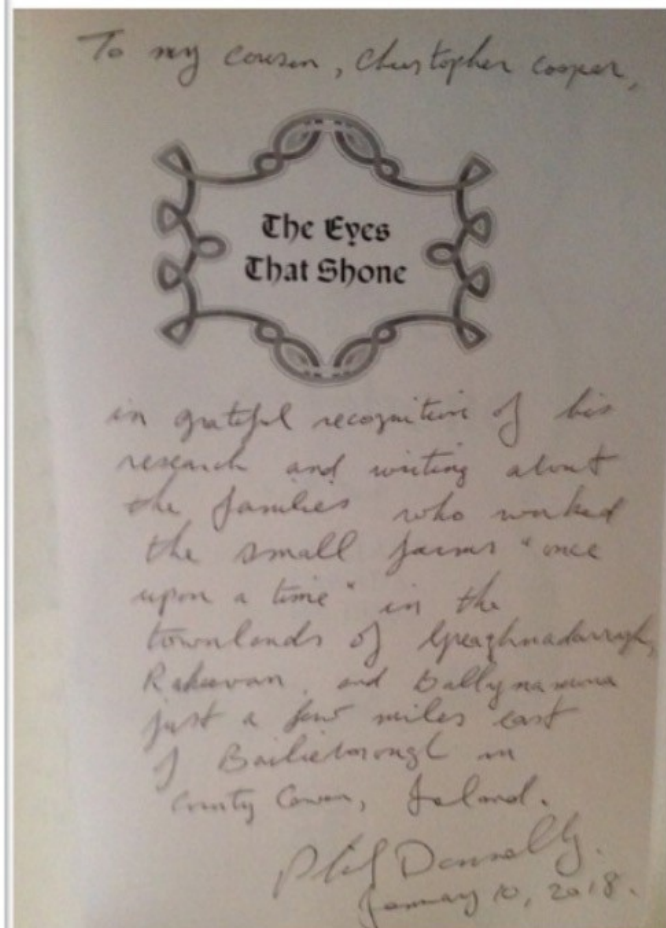 To my cousin, Christopher Cooper,
The Eyes
That Shone
in grateful recognition of his
research and writing about
the families who worked
the small farms "once
upon a time" in the
townlands of
Rakeevan, and Ballynamona
just a few miles east
of Bailieborough in
County Cavan, Ireland.
Phil Donnelly.
January 10, 2018.